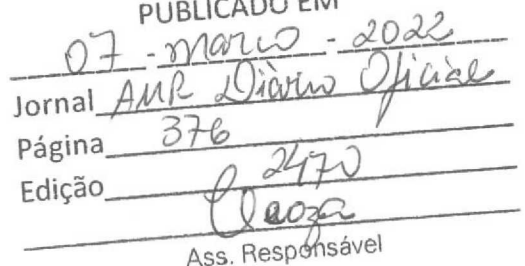 PUBLICADO EM
07 - março - 2022
Jornal AMP Diário Oficial
Página 376
Edição 2470
Ass. Responsável